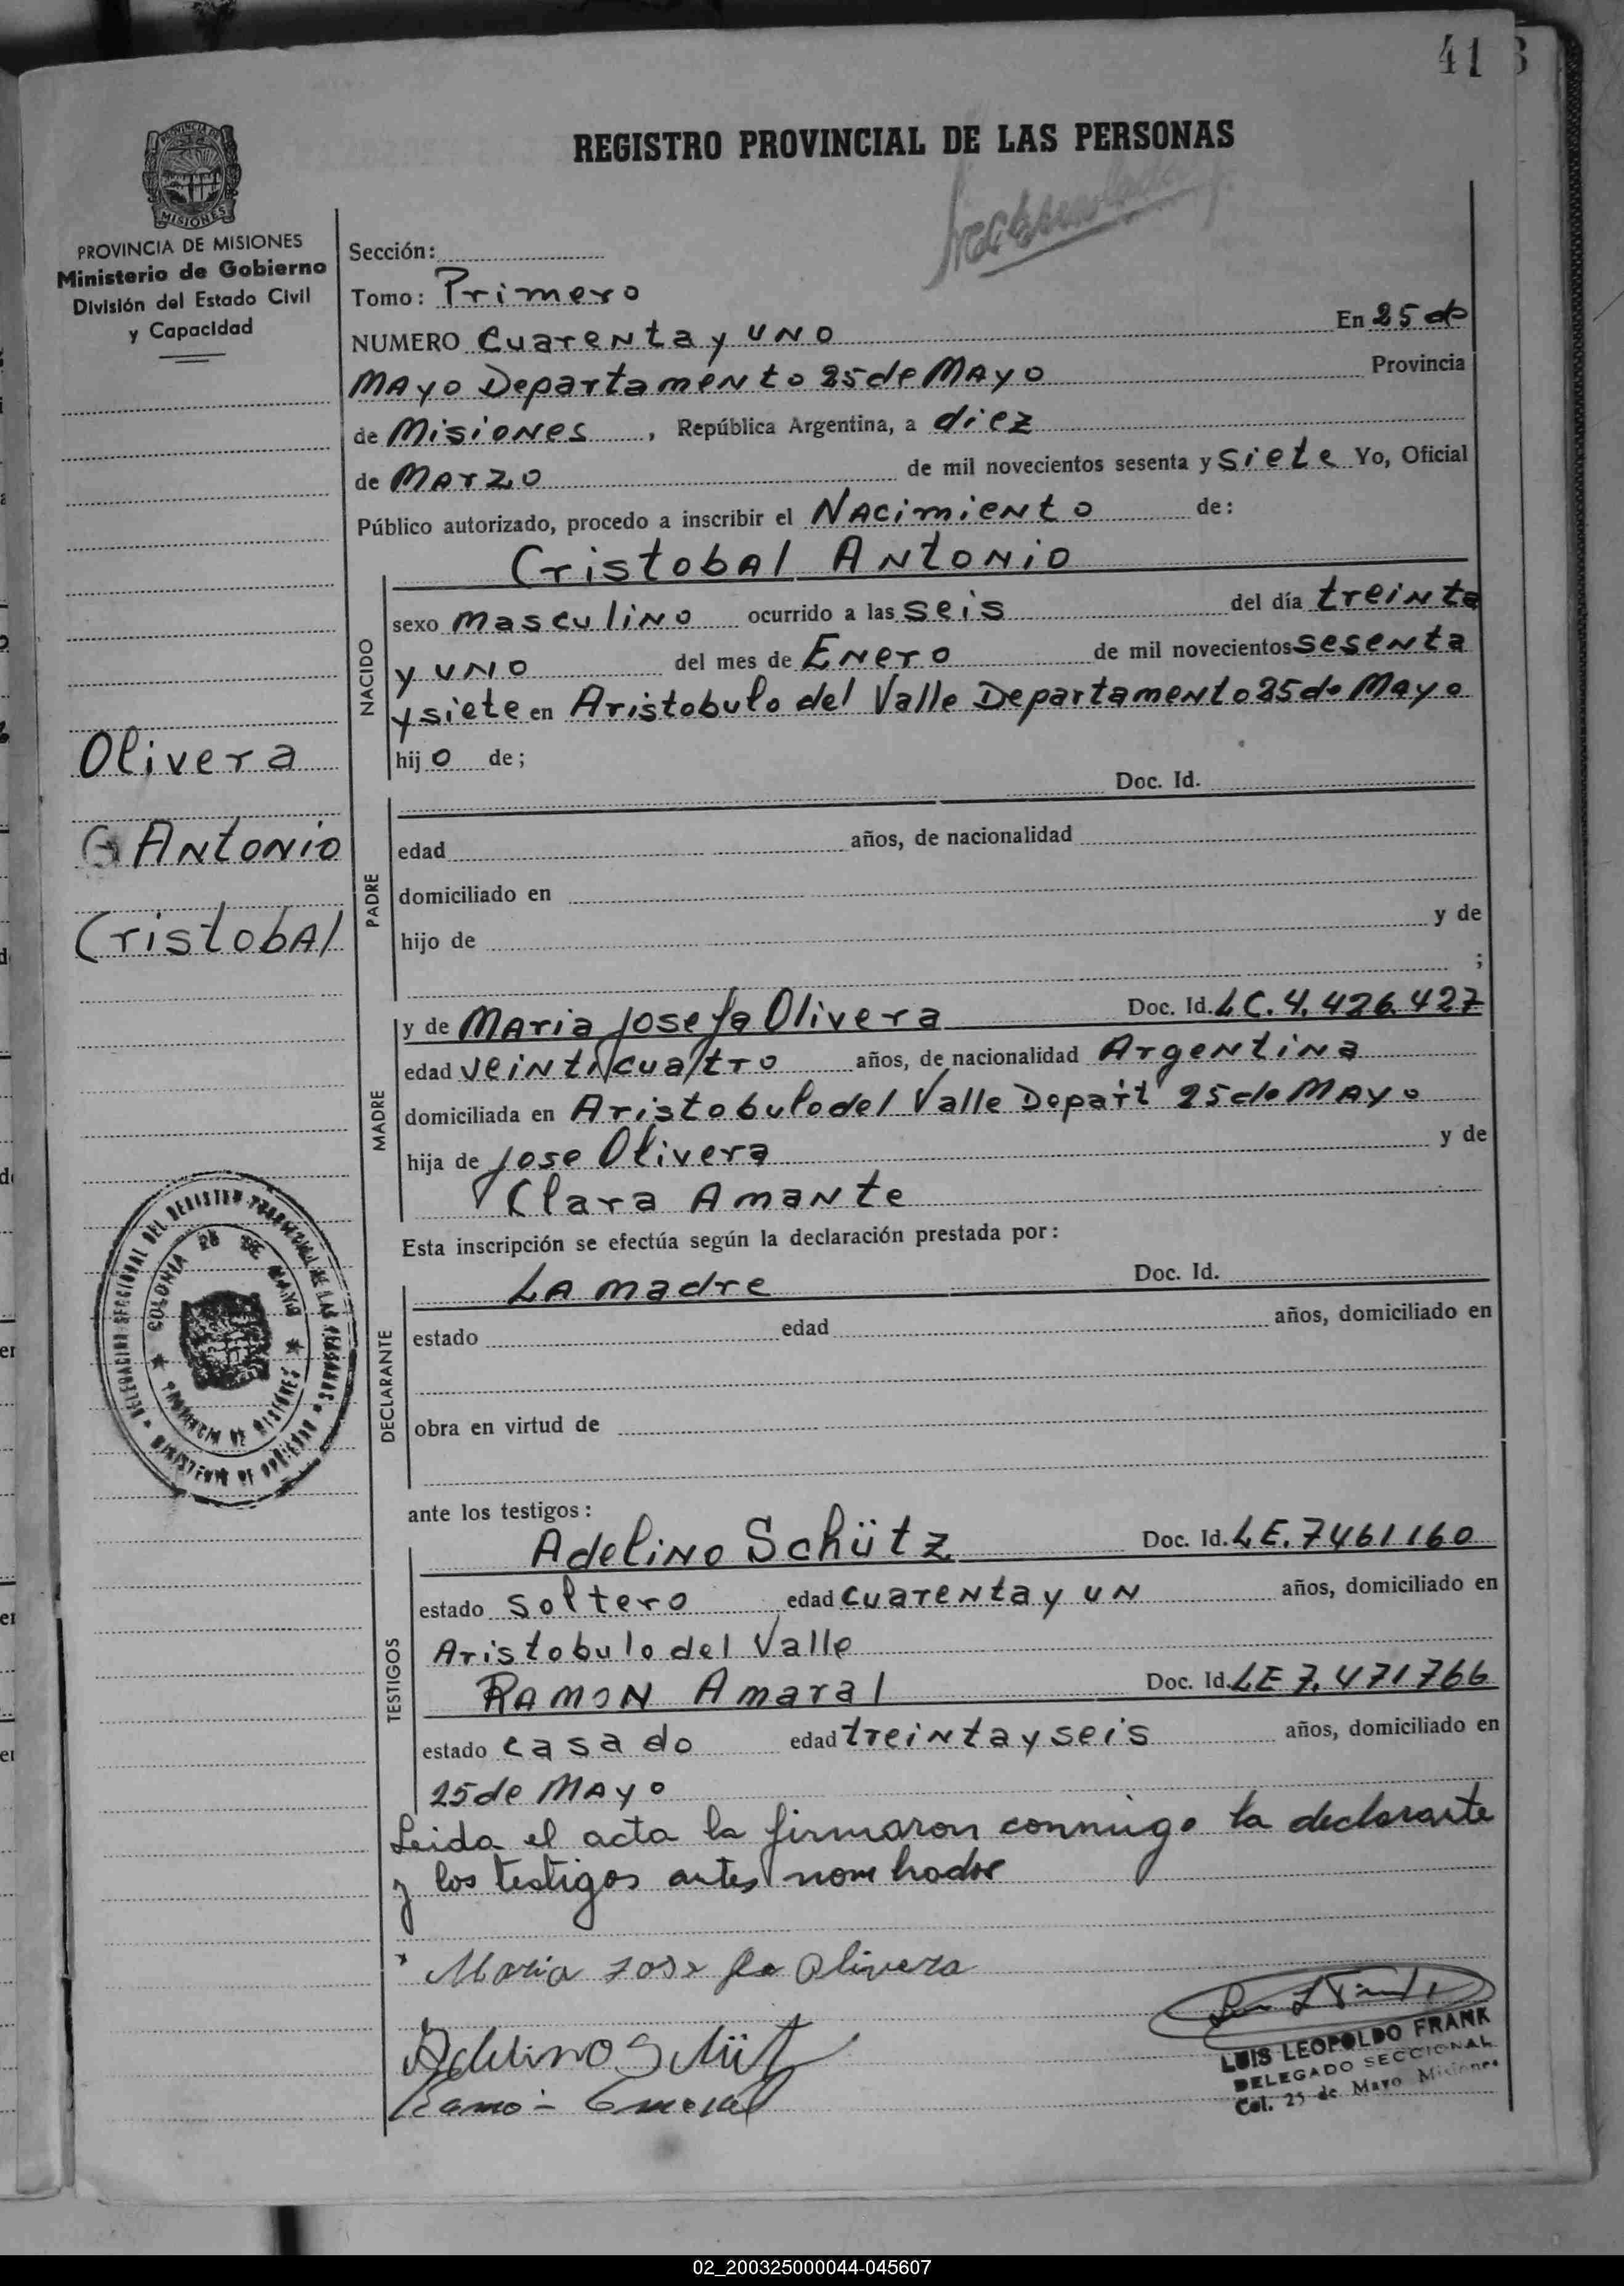 41 3
REGISTRO PROVINCIAL DE LAS PERSONAS
PROVINCIA DE
MISIONES
PROVINCIA DE MISIONES
Ministerio de Gobierno
División del Estado Civil
y Capacidad
Sección:
Tomo: Primero
NUMERO Cuarenta y uno En 25 de
Mayo Departamento 25 de Mayo Provincia
de Misiones, República Argentina, a diez
de Marzo de mil novecientos sesenta y siete Yo, Oficial
Público autorizado, procedo a inscribir el Nacimiento de:
Cristobal Antonio
NACIDO
sexo masculino ocurrido a las seis del día treinta
y uno del mes de Enero de mil novecientos sesenta
y siete en Aristobulo del Valle Departamento 25 de Mayo
hijo de;
Olivera
Antonio
Cristobal
PADRE
Doc. Id.
edad años, de nacionalidad
domiciliado en
hijo de y de
;
MADRE
y de Maria Josefa Olivera Doc. Id. LC. 4.426.427
edad veinticuatro años, de nacionalidad Argentina
domiciliada en Aristobulo del Valle Depart 25 de Mayo
hija de Jose Olivera y de
Clara Amante
Esta inscripción se efectúa según la declaración prestada por:
DECLARANTE
La madre Doc. Id.
estado edad años, domiciliado en
obra en virtud de
DELEGACION SECCIONAL DEL REGISTRO PROVINCIAL DE LAS PERSONAS
MINISTERIO DE GOBIERNO
COLONIA 25 DE MAYO
PROVINCIA DE MISIONES
ante los testigos:
TESTIGOS
Adelino Schütz Doc. Id. LE. 7461160
estado soltero edad cuarenta y un años, domiciliado en
Aristobulo del Valle
Ramon Amaral Doc. Id. LE 7.471766
estado casado edad treinta y seis años, domiciliado en
25 de Mayo
Leida el acta la firmaron conmigo la declarante
y los testigos antes nombrados
Maria Josefa Olivera
Adelino Schütz
Ramon Amaral
LUIS LEOPOLDO FRANK
DELEGADO SECCIONAL
Col. 25 de Mayo Misiones
02_200325000044-045607